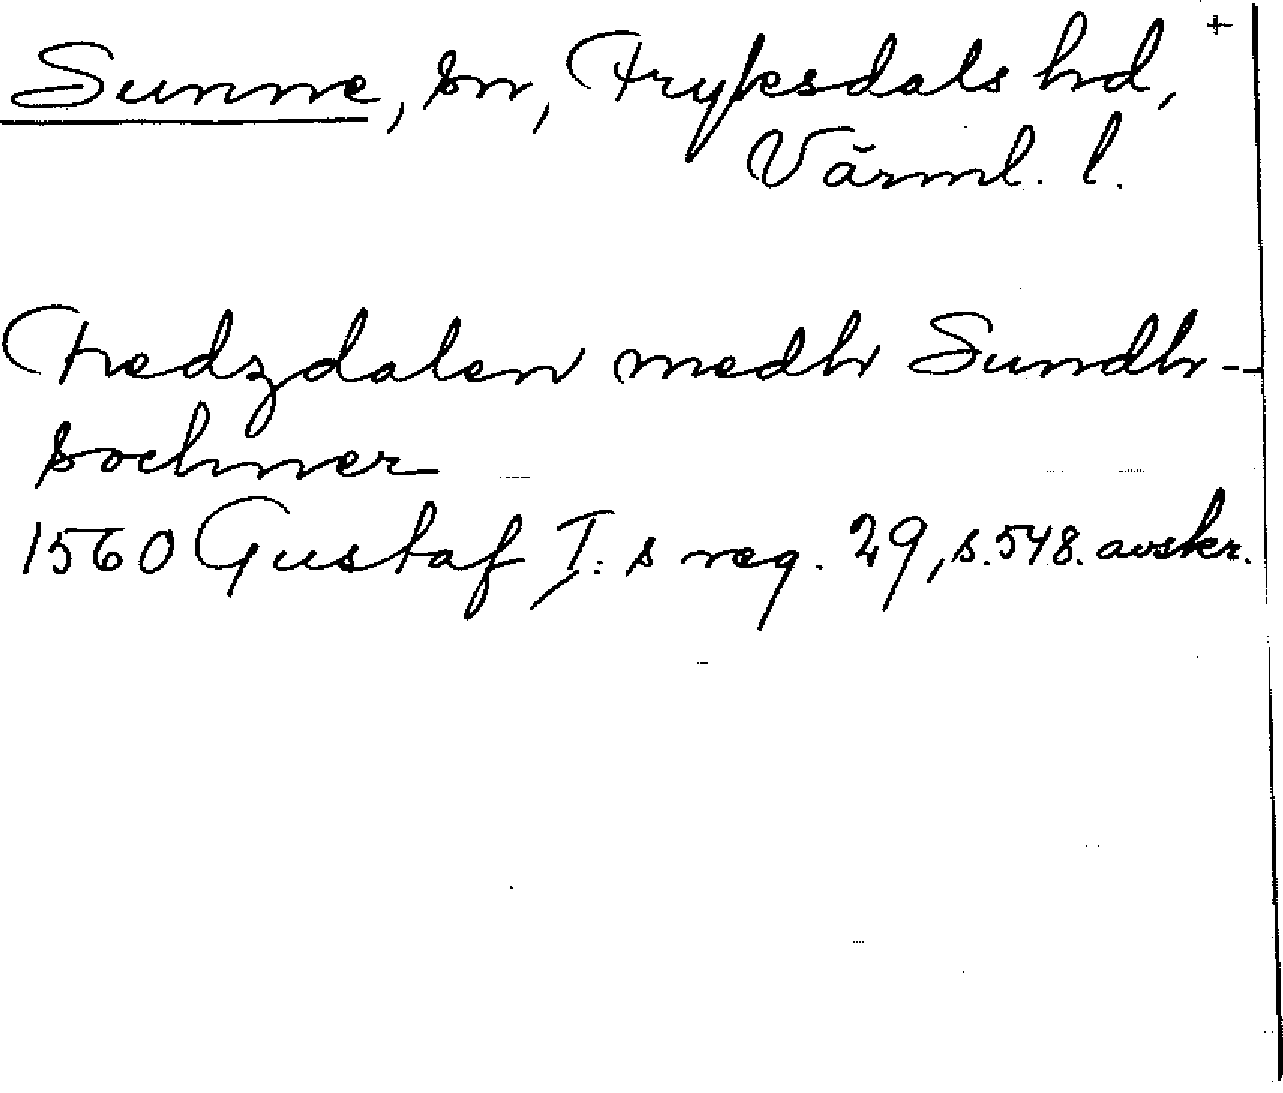 Sunne, sn, Fryksdals hd, +
Värml. l.
Fredzdalen medh Sundh-
sochner
1560 Gustaf I:s reg. 29, s. 548. avskr.